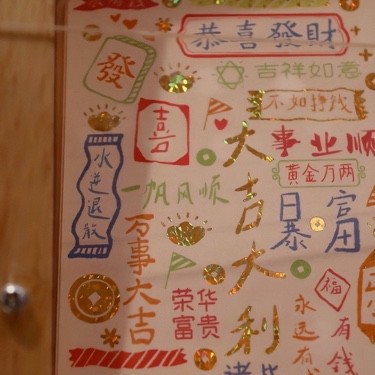 恭喜發財
發
吉祥如意
不如挣钱
吉
大吉大利
事业顺
黄金万两
水逆退散
一帆风顺
日泰
富田
万事大吉
福
荣华
富贵
永远有
有钱
诸